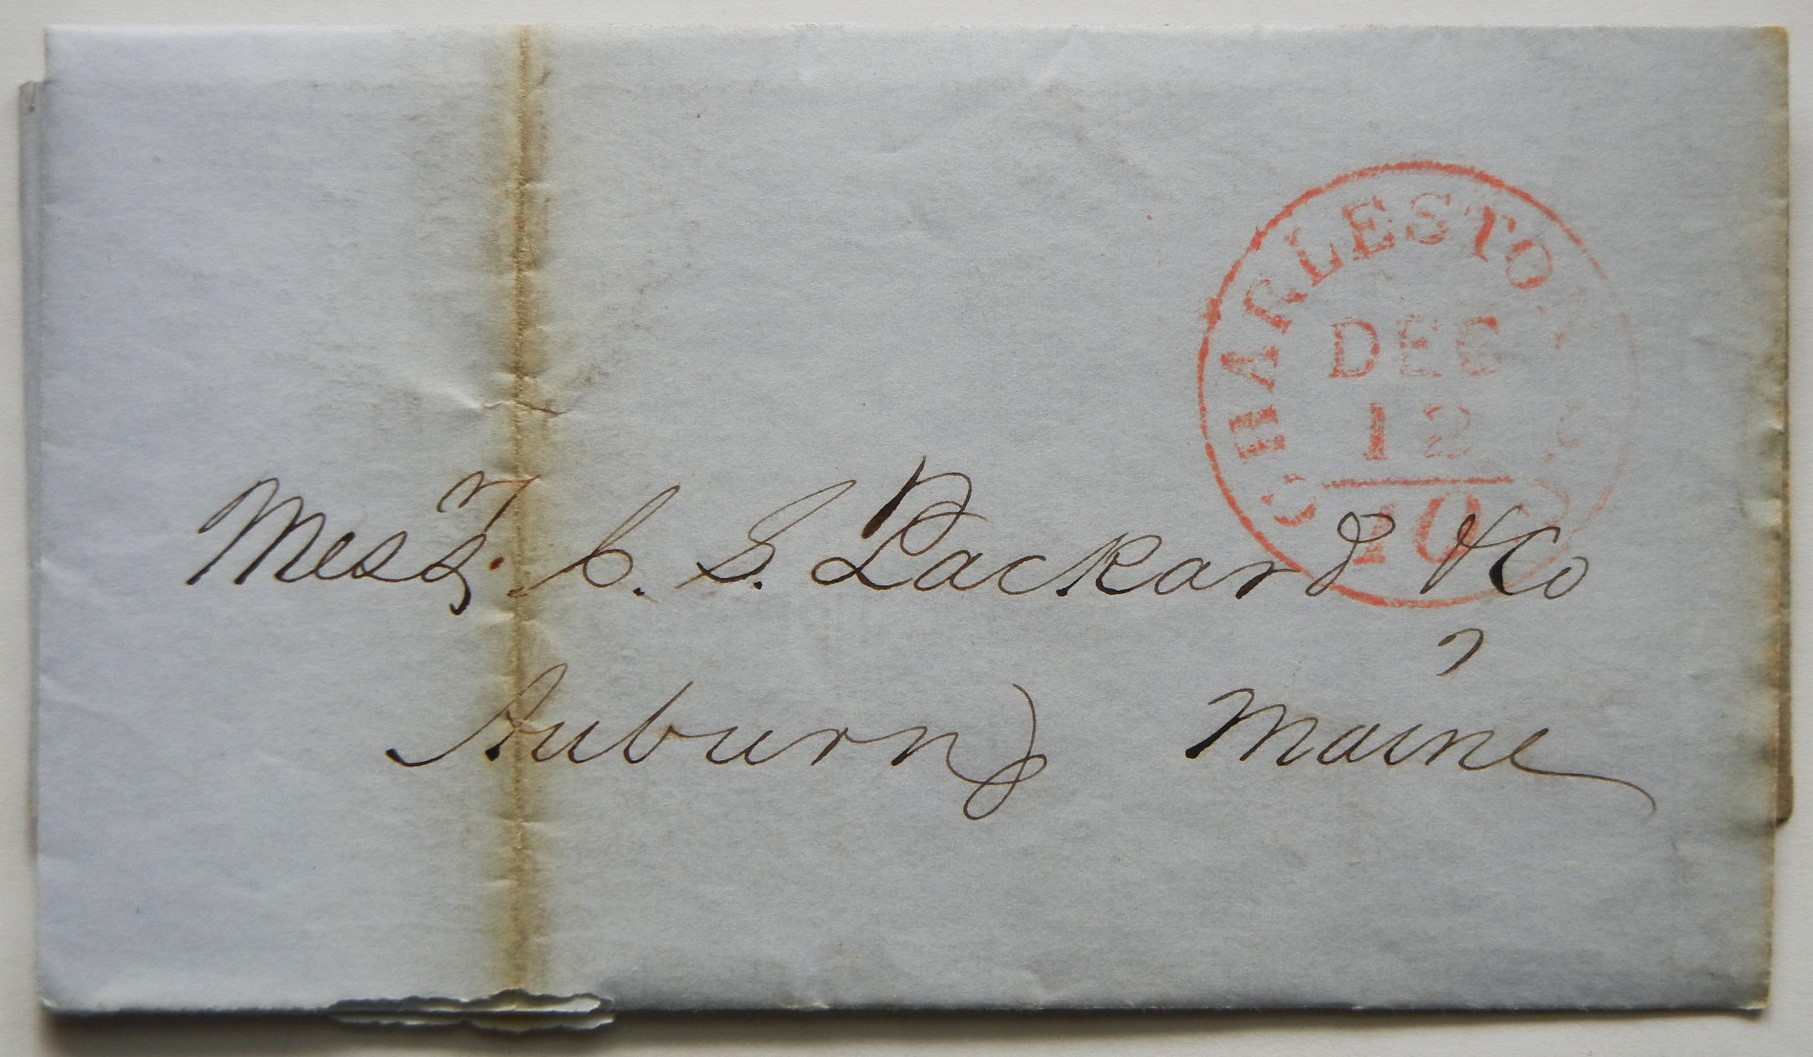 CHARLESTON
DEC
12
10
Messrs. C. S. Packard & Co
Auburn, Maine